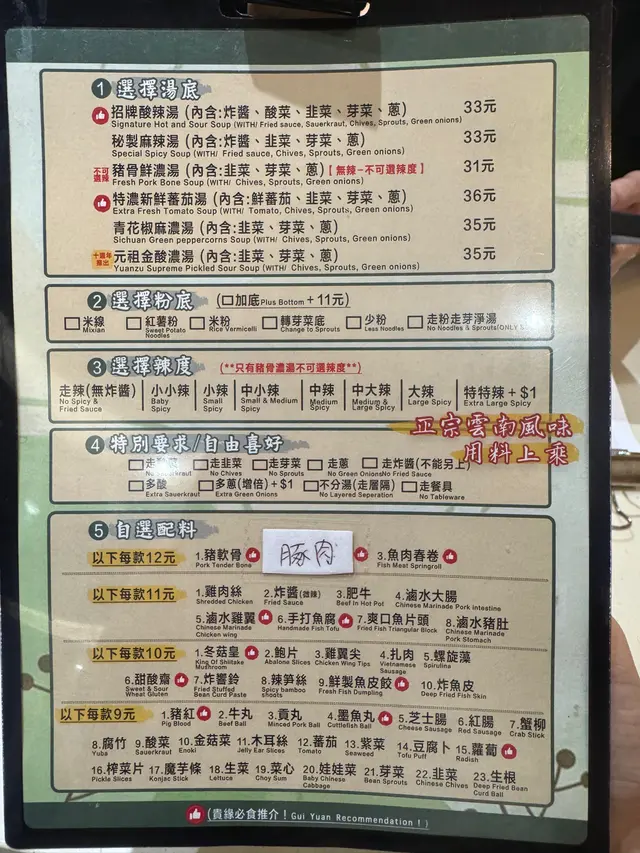 1 選擇湯底
招牌酸辣湯 (內含:炸醬、酸菜、韭菜、芽菜、蔥) 33元
Signature Hot and Sour Soup (WITH/ Fried sauce, Sauerkraut, Chives, Sprouts, Green onions)
秘製麻辣湯 (內含:炸醬、韭菜、芽菜、蔥) 33元
Special Spicy Soup (WITH/ Fried sauce, Chives, Sprouts, Green onions)
不可選辣 豬骨鮮濃湯 (內含:韭菜、芽菜、蔥)【無辣-不可選辣度】 31元
Fresh Pork Bone Soup (WITH/ Chives, Sprouts, Green onions)
特濃新鮮蕃茄湯 (內含:鮮蕃茄、韭菜、芽菜、蔥) 36元
Extra Fresh Tomato Soup (WITH/ Tomato, Chives, Sprouts, Green onions)
青花椒麻濃湯 (內含:韭菜、芽菜、蔥) 35元
Sichuan Green peppercorns Soup (WITH/ Chives, Sprouts, Green onions)
十週年推出 元祖金酸濃湯 (內含:韭菜、芽菜、蔥) 35元
Yuanzu Supreme Pickled Sour Soup (WITH/ Chives, Sprouts, Green onions)
2 選擇粉底 (加底Plus Bottom + 11元)
米線 紅薯粉 米粉 轉芽菜底 少粉 走粉走芽淨湯
Mixian Sweet Potato Noodles Rice Vermicelli Change to Sprouts Less Noodles No Noodles & Sprouts(ONLY
3 選擇辣度 (**只有豬骨濃湯不可選辣度**)
走辣(無炸醬) 小小辣 小辣 中小辣 中辣 中大辣 大辣 特特辣 + $1
No Spicy & Fried Sauce Baby Spicy Small Spicy Small & Medium Spicy Medium Spicy Medium & Large Spicy Large Spicy Extra Large Spicy
正宗雲南風味
用料上乘
4 特別要求/自由喜好
走韭菜 走芽菜 走蔥 走炸醬(不能另上)
No Chives No Sprouts No Green Onions No Fried Sauce
多酸 多蔥(增倍) + $1 不分湯(走層隔) 走餐具
Extra Sauerkraut Extra Green Onions No Layered Seperation No Tableware
5 自選配料
以下每款12元 1.豬軟骨 豚肉 3.魚肉春卷
Pork Tender Bone Fish Meat Springroll
以下每款11元 1.雞肉絲 2.炸醬(微辣) 3.肥牛 4.滷水大腸
Shredded Chicken Fried Sauce Beef in Hot Pot Chinese Marinade Pork intestine
5.滷水雞翼 6.手打魚腐 7.爽口魚片頭 8.滷水豬肚
Chinese Marinade Chicken wing Handmade Fish Tofu Fried Fish Triangular Block Chinese Marinade Pork Stomach
以下每款10元 1.冬菇皇 2.鮑片 3.雞翼尖 4.扎肉 5.螺旋藻
King Of Shiitake Muthroom Abalone Slices Chicken Wing Tips Vietnamese Sausage Spirulina
6.甜酸齋 7.炸響鈴 8.辣筍絲 9.鮮製魚皮餃 10.炸魚皮
Sweet & Sour Wheat Gluten Fried Stuffed Bean Curd Paste Spicy bamboo shoots Fresh Fish Dumpling Deep Fried Fish Skin
以下每款9元 1.豬紅 2.牛丸 3.貢丸 4.墨魚丸 5.芝士腸 6.紅腸 7.蟹柳
Pig Blood Beef Ball Minced Pork Ball Cuttlefish Ball Cheese Sausage Red Sausage Crab Stick
8.腐竹 9.酸菜 10.金菇菜 11.木耳絲 12.蕃茄 13.紫菜 14.豆腐卜 15.蘿蔔
Yuba Sauerkraut Enoki Jelly Ear Slices Tomato Seaweed Tofu Puff Radish
16.榨菜片 17.魔芋條 18.生菜 19.菜心 20.娃娃菜 21.芽菜 22.韭菜 23.生根
Pickle Slices Konjac Stick Lettuce Choy Sum Baby Chinese Cabbage Bean Sprouts Chinese Chives Deep Fried Bean Curd Ball
(貴緣必食推介！Gui Yuan Recommendation！)